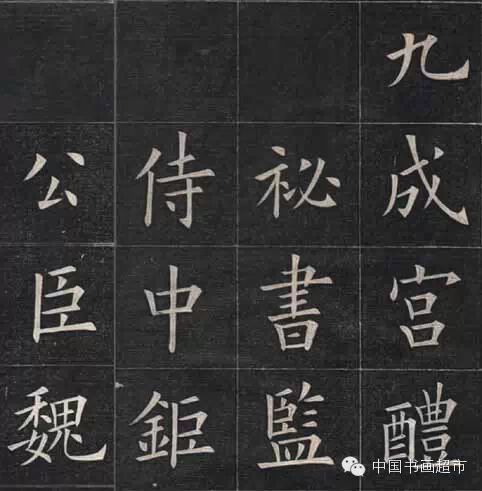 九成宮醴
祕書監
侍中鉅
公臣魏
中国书画超市